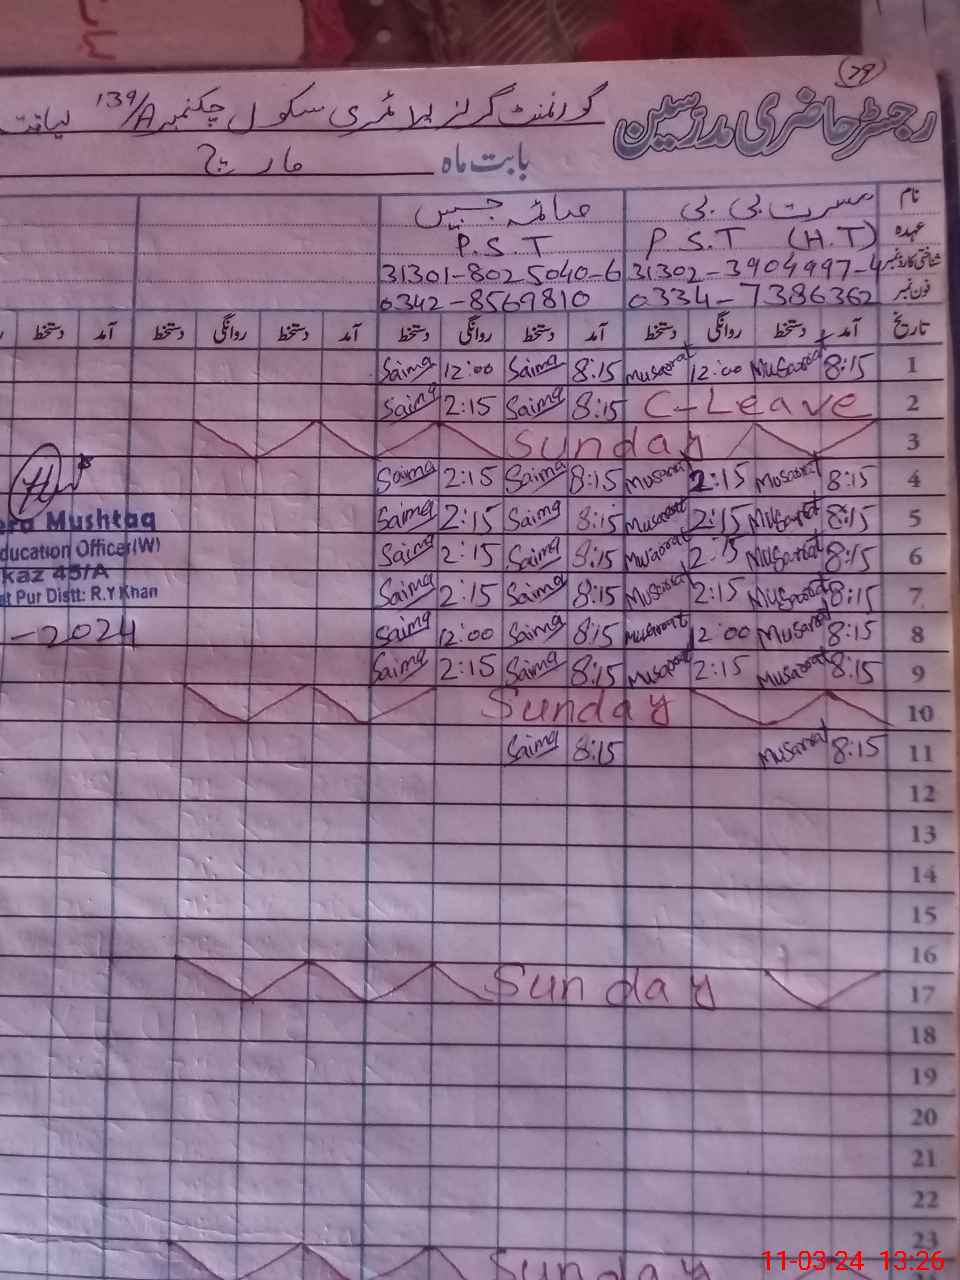 79
رجسٹر حاضری مدرسین گورنمنٹ گرلز پرائمری سکول چکنمبر 139/A لیاقت
بابت ماہ مارچ
نام مسرت بی بی صائمہ جبیں
عہدہ P.S.T (H.T) P.S.T
شناختی کارڈ نمبر 31302-3904997-4 31301-8025040-6
فون نمبر 0334-7386362 0342-8569810
تاریخ آمد دستخط روانگی دستخط آمد دستخط روانگی دستخط آمد دستخط روانگی دستخط آمد دستخط
1 8:15 Musarat 12:00 Musarat 8:15 Saima 12:00 Saima
2 C-Leave 8:15 Saima 2:15 Saima
3 Sunday
4 8:15 Musarat 2:15 Musarat 8:15 Saima 2:15 Saima
5 8:15 Musarat 2:15 Musarat 8:15 Saima 2:15 Saima
6 8:15 Musarat 2:15 Musarat 8:15 Saima 2:15 Saima
7 8:15 Musarat 2:15 Musarat 8:15 Saima 2:15 Saima
8 8:15 Musarat 12:00 Musarat 8:15 Saima 12:00 Saima
9 8:15 Musarat 2:15 Musarat 8:15 Saima 2:15 Saima
10 Sunday
11 8:15 Musarat 8:15 Saima
12
13
14
15
16
17 Sunday
18
19
20
21
22
23
Sunday
Mushtaq
ducation Officer(W)
kaz 45/A
at Pur Distt: R.Y Khan
-2024
11-03-24 13:26